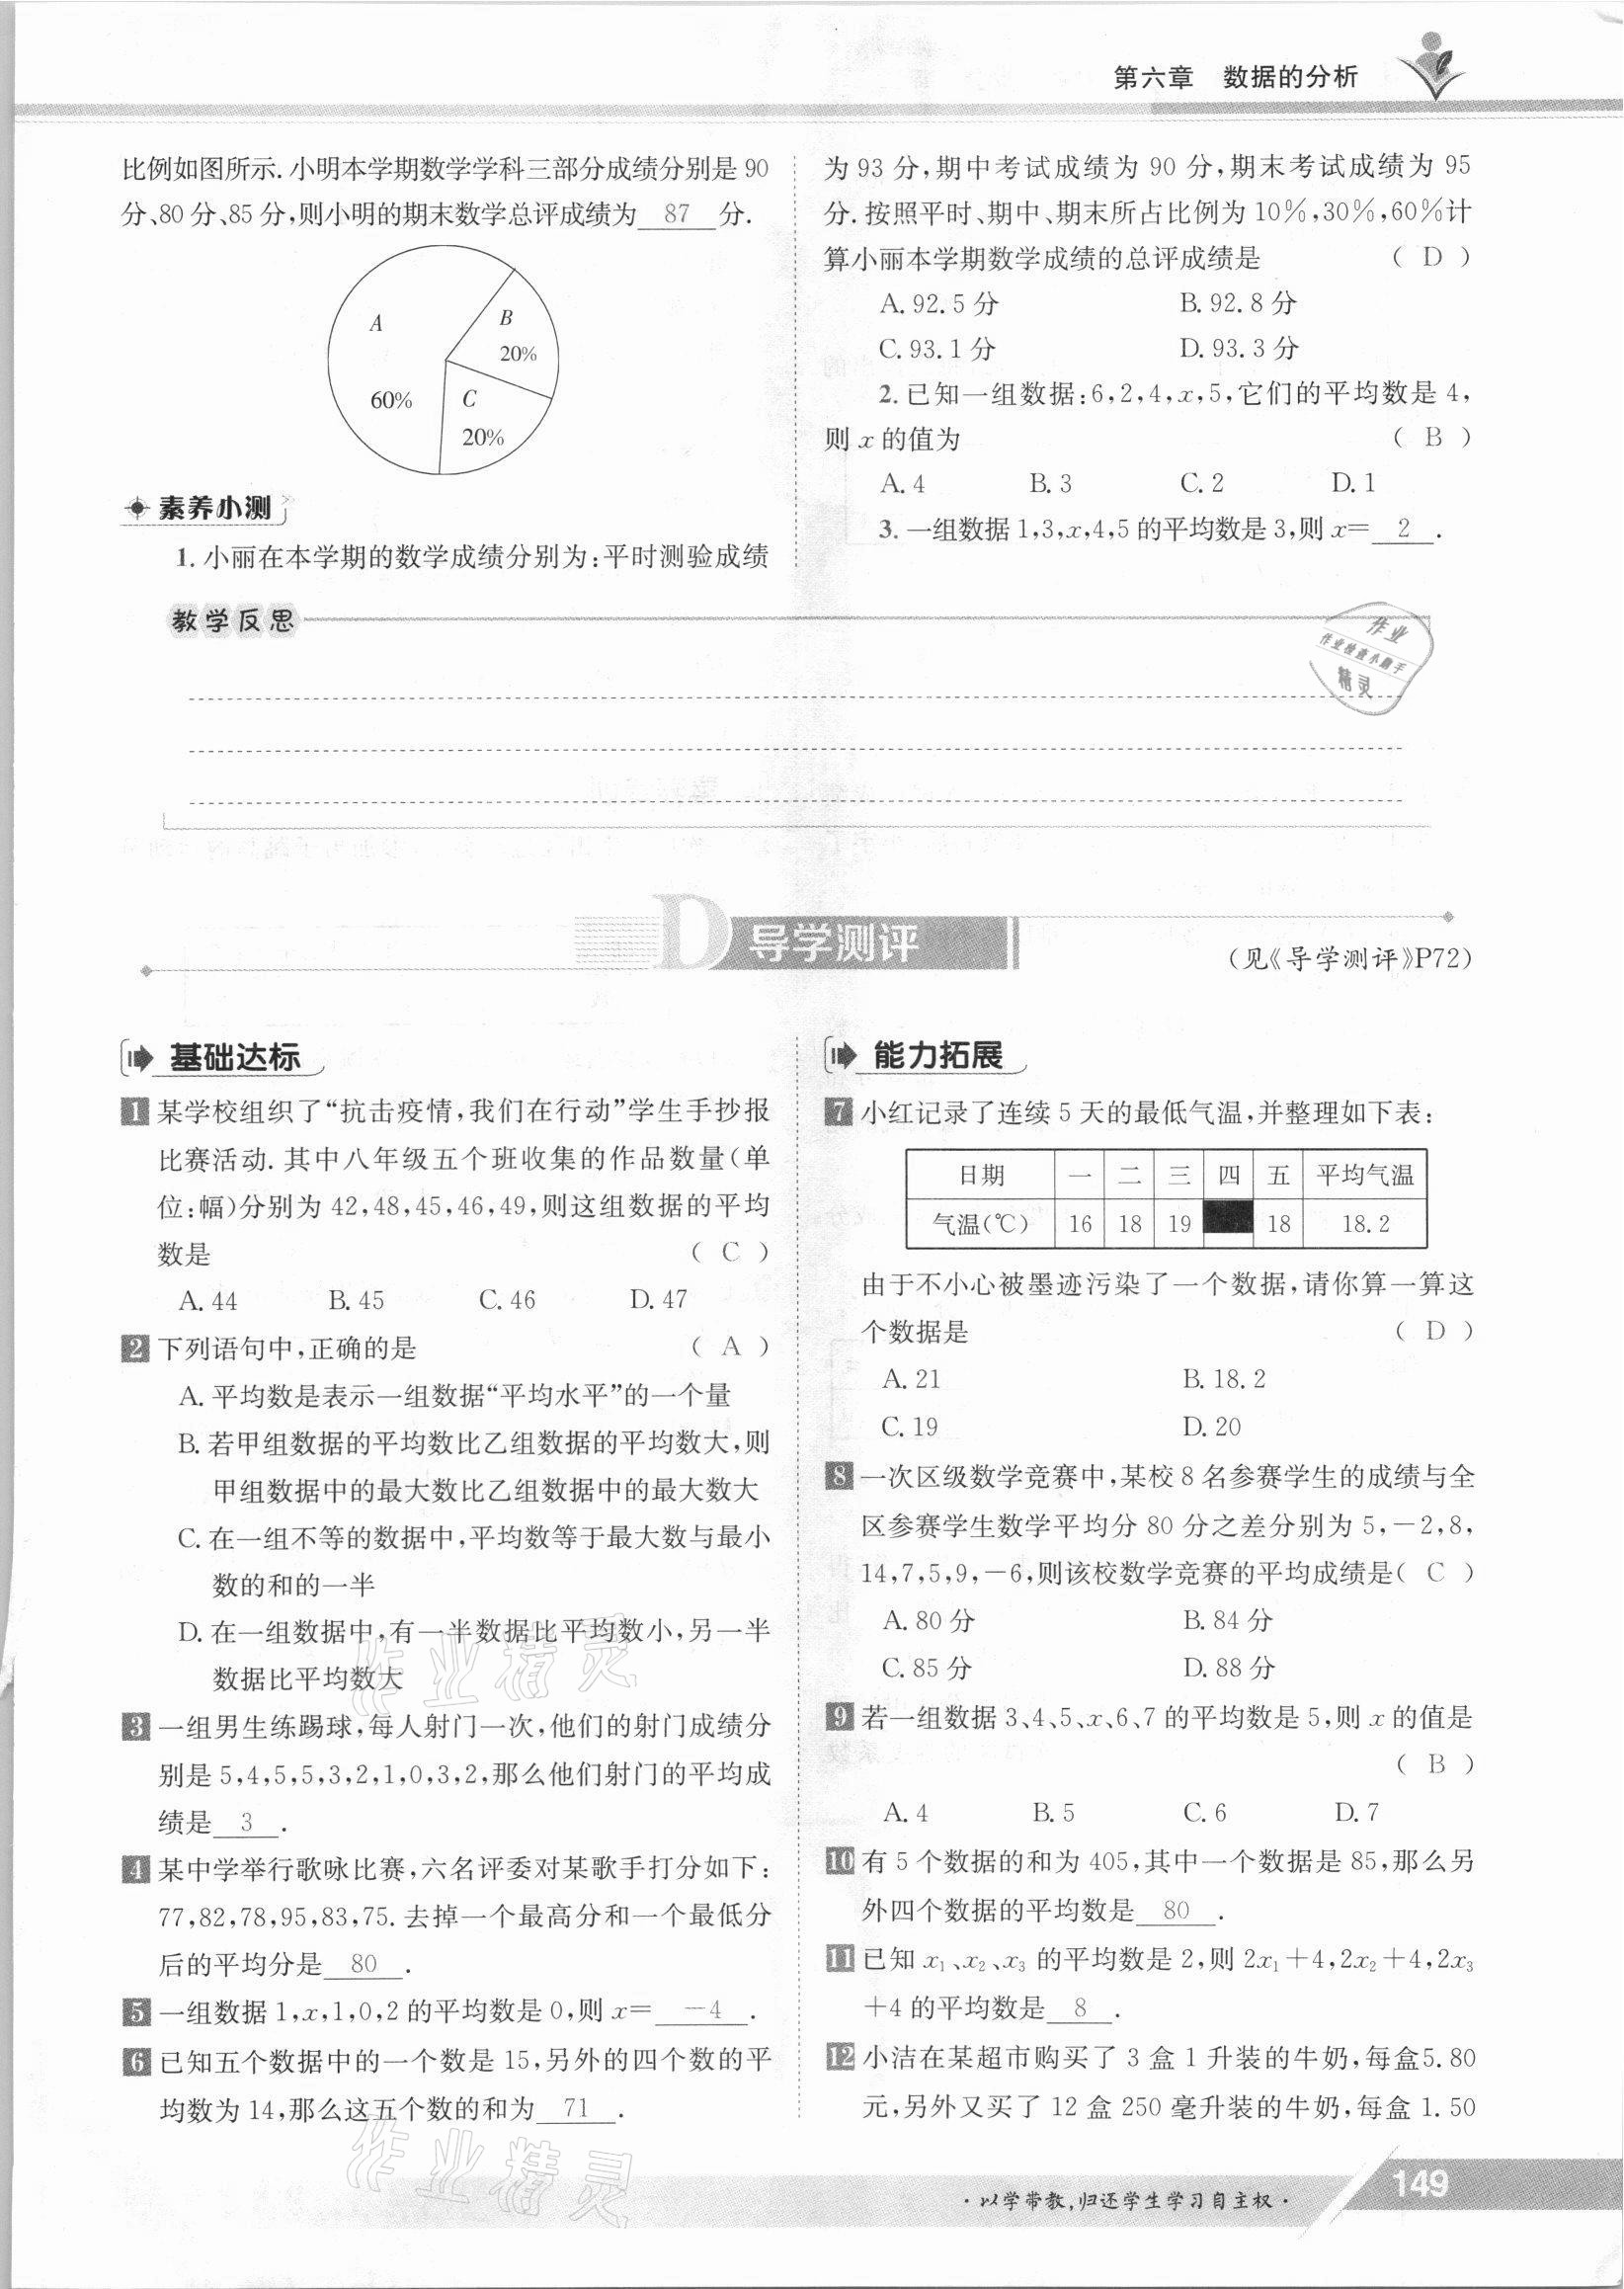 第六章 数据的分析
比例如图所示. 小明本学期数学学科三部分成绩分别是 90
分、80 分、85 分,则小明的期末数学总评成绩为 87 分.
A
60%
B
20%
C
20%
素养小测
1. 小丽在本学期的数学成绩分别为:平时测验成绩
为 93 分,期中考试成绩为 90 分,期末考试成绩为 95
分. 按照平时、期中、期末所占比例为 10%,30%,60%计
算小丽本学期数学成绩的总评成绩是 ( D )
A. 92.5 分 B. 92.8 分
C. 93.1 分 D. 93.3 分
2. 已知一组数据:6,2,4,x,5,它们的平均数是 4,
则 x 的值为 ( B )
A. 4 B. 3 C. 2 D. 1
3. 一组数据 1,3,x,4,5 的平均数是 3,则 x= 2 .
教学反思
作业
作业检查小助手
精灵
D 导学测评
(见《导学测评》P72)
基础达标
1 某学校组织了“抗击疫情,我们在行动”学生手抄报
比赛活动. 其中八年级五个班收集的作品数量(单
位:幅)分别为 42,48,45,46,49,则这组数据的平均
数是 ( C )
A. 44 B. 45 C. 46 D. 47
2 下列语句中,正确的是 ( A )
A. 平均数是表示一组数据“平均水平”的一个量
B. 若甲组数据的平均数比乙组数据的平均数大,则
甲组数据中的最大数比乙组数据中的最大数大
C. 在一组不等的数据中,平均数等于最大数与最小
数的和的一半
D. 在一组数据中,有一半数据比平均数小,另一半
数据比平均数大
3 一组男生练踢球,每人射门一次,他们的射门成绩分
别是 5,4,5,5,3,2,1,0,3,2,那么他们射门的平均成
绩是 3 .
4 某中学举行歌咏比赛,六名评委对某歌手打分如下:
77,82,78,95,83,75. 去掉一个最高分和一个最低分
后的平均分是 80 .
5 一组数据 1,x,1,0,2 的平均数是 0,则 x= -4 .
6 已知五个数据中的一个数是 15,另外的四个数的平
均数为 14,那么这五个数的和为 71 .
能力拓展
7 小红记录了连续 5 天的最低气温,并整理如下表:
日期 一 二 三 四 五 平均气温
气温(℃) 16 18 19 18 18.2
由于不小心被墨迹污染了一个数据,请你算一算这
个数据是 ( D )
A. 21 B. 18.2
C. 19 D. 20
8 一次区级数学竞赛中,某校 8 名参赛学生的成绩与全
区参赛学生数学平均分 80 分之差分别为 5,-2,8,
14,7,5,9,-6,则该校数学竞赛的平均成绩是( C )
A. 80 分 B. 84 分
C. 85 分 D. 88 分
9 若一组数据 3、4、5、x、6、7 的平均数是 5,则 x 的值是
( B )
A. 4 B. 5 C. 6 D. 7
10 有 5 个数据的和为 405,其中一个数据是 85,那么另
外四个数据的平均数是 80 .
11 已知 x₁、x₂、x₃ 的平均数是 2,则 2x₁+4,2x₂+4,2x₃
+4 的平均数是 8 .
12 小洁在某超市购买了 3 盒 1 升装的牛奶,每盒5.80
元,另外又买了 12 盒 250 毫升装的牛奶,每盒 1.50
作业精灵
作业精灵
·以学带教,归还学生学习自主权·
149